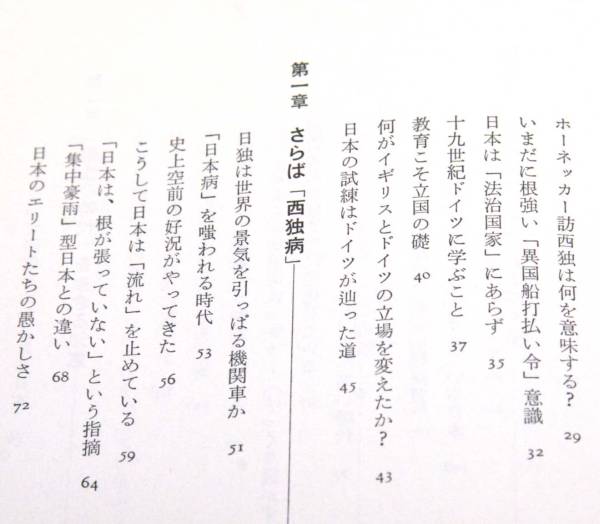 ホーネッカー訪西独は何を意味する? 29
いまだに根強い「異国船打払い令」意識 32
日本は「法治国家」にあらず 35
十九世紀ドイツに学ぶこと 37
教育こそ立国の礎 40
何がイギリスとドイツの立場を変えたか? 43
日本の試練はドイツが辿った道 45
第一章 さらば「西独病」
日独は世界の景気を引っぱる機関車か 51
「日本病」を嗤われる時代 53
史上空前の好況がやってきた 56
こうして日本は「流れ」を止めている 59
「日本は、根が張っていない」という指摘 64
「集中豪雨」型日本との違い 68
日本のエリートたちの愚かしさ 72